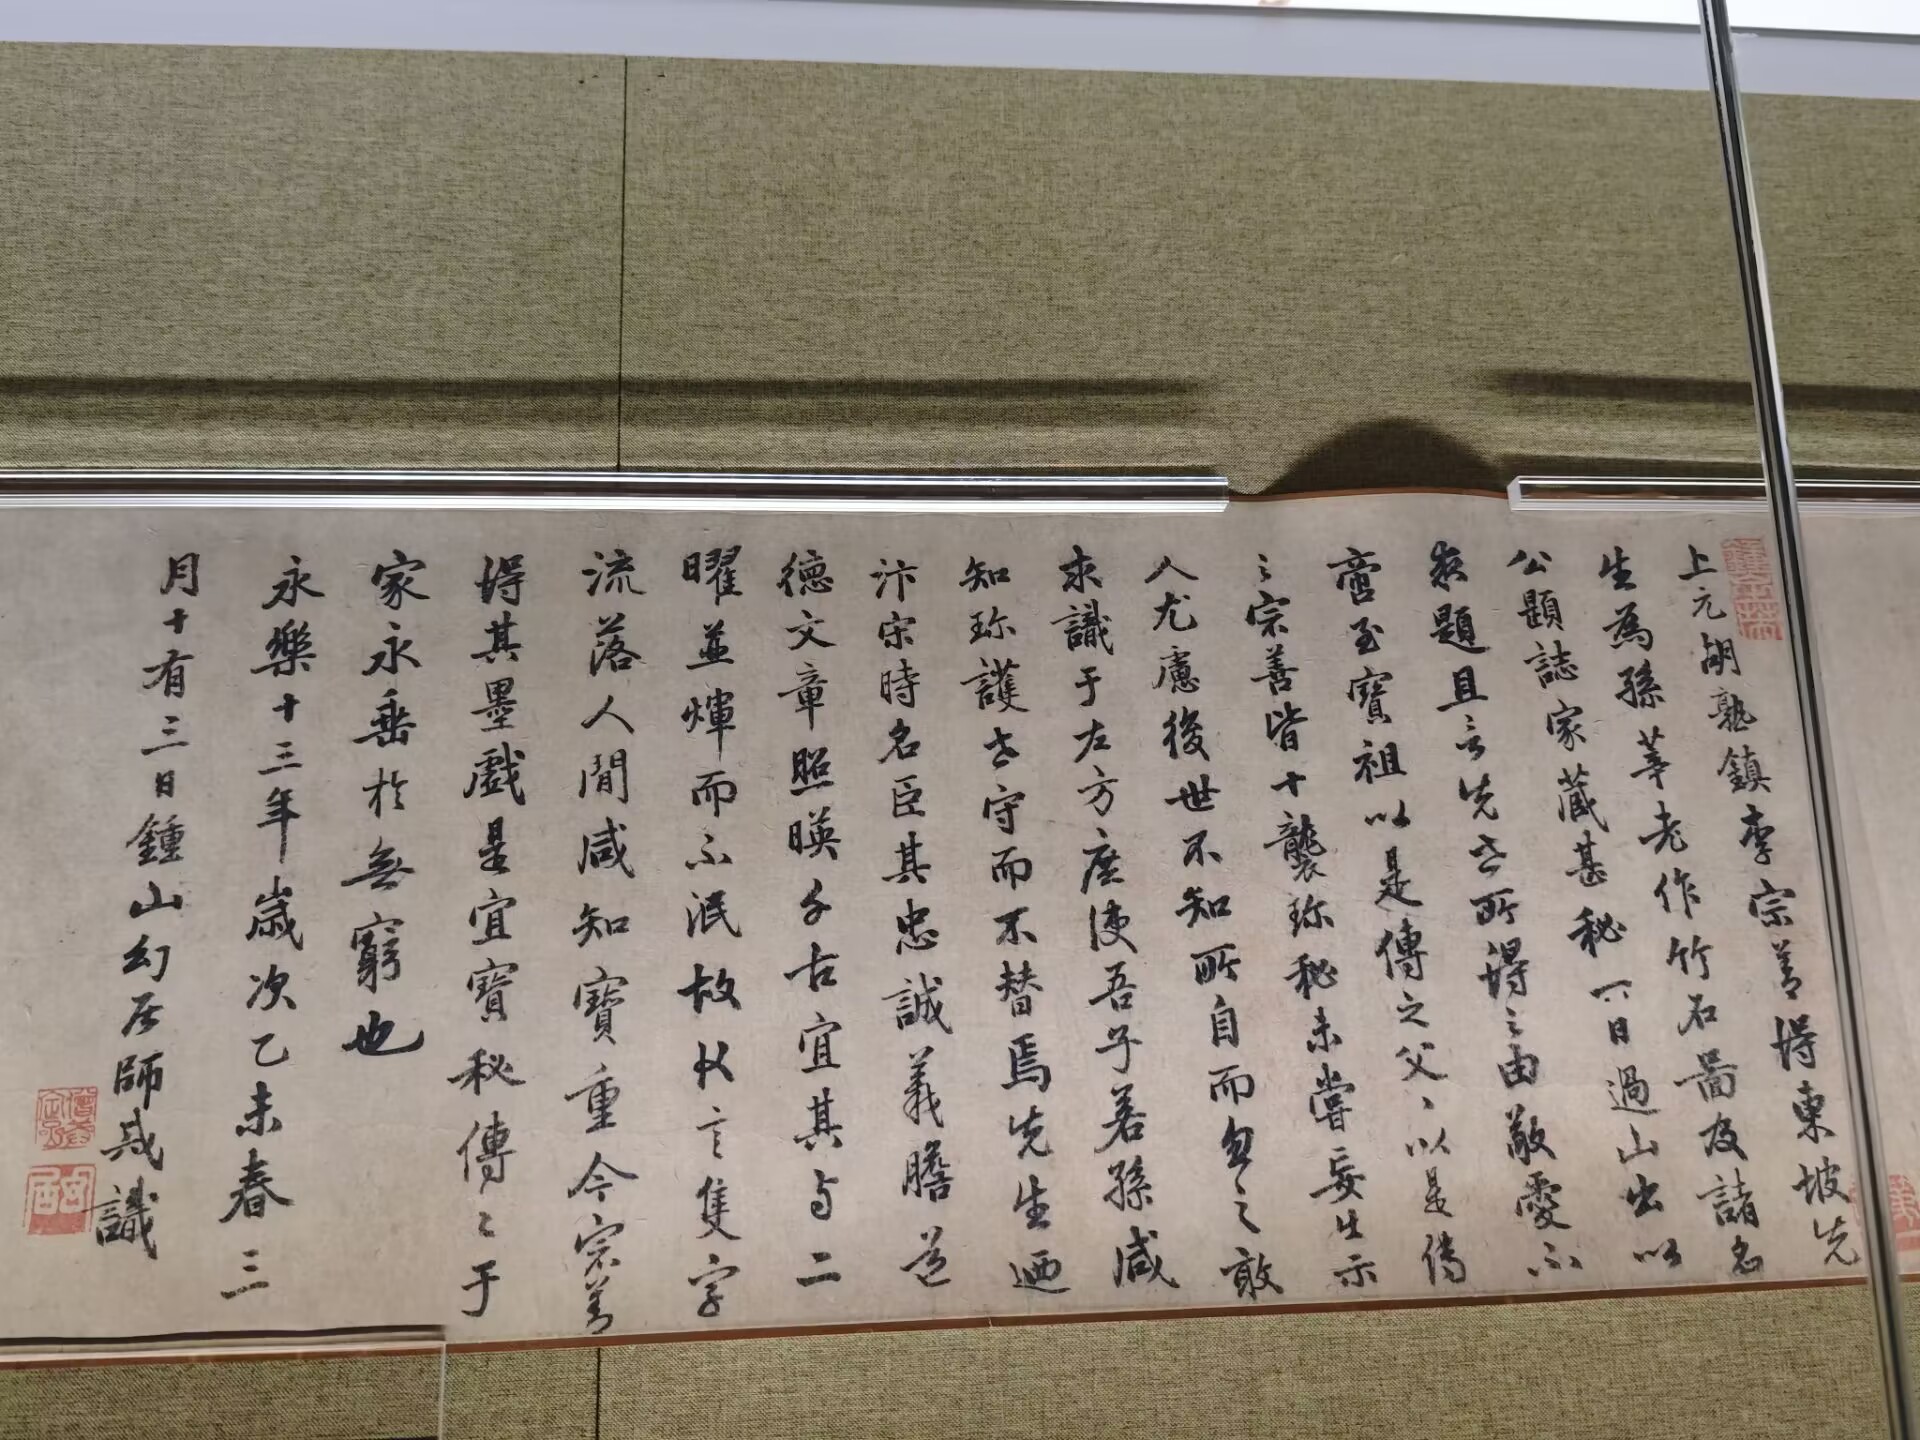 上元胡熟鎮李宗善得東坡先
生為孫莘老作竹石圖及諸名
公題誌家藏甚秘一日過山出以
求題且言先世所得之由敬愛不
啻至寶祖以是傳之父〻以是傳
之宗善皆十襲珍秘未嘗妄出示
人尤慮後世不知所自而忽之敢
求識于左方庶使吾子若孫咸
知珍護世守而不替焉先生廼
汴宋時名臣其忠誠義膽道
德文章照暎千古宜其与二
曜並煇而不泯故片言隻字
流落人間咸知寶重今宗善
得其墨戲是宜寶秘傳之于
家永垂於無窮也
永樂十三年歲次乙未春三
月十有三日鍾山幻居師戒識